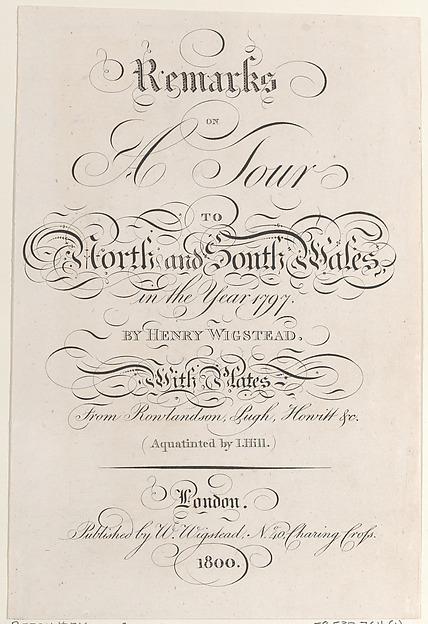 Remarks
ON
A Tour
TO
North and South Wales,
in the Year 1797.
BY HENRY WIGSTEAD,
With Plates
From Rowlandson, Pugh, Howitt &c.
(Aquatinted by I. Hill.)
London.
Published by W. Wigstead, No. 40, Charing Croſs.
1800.